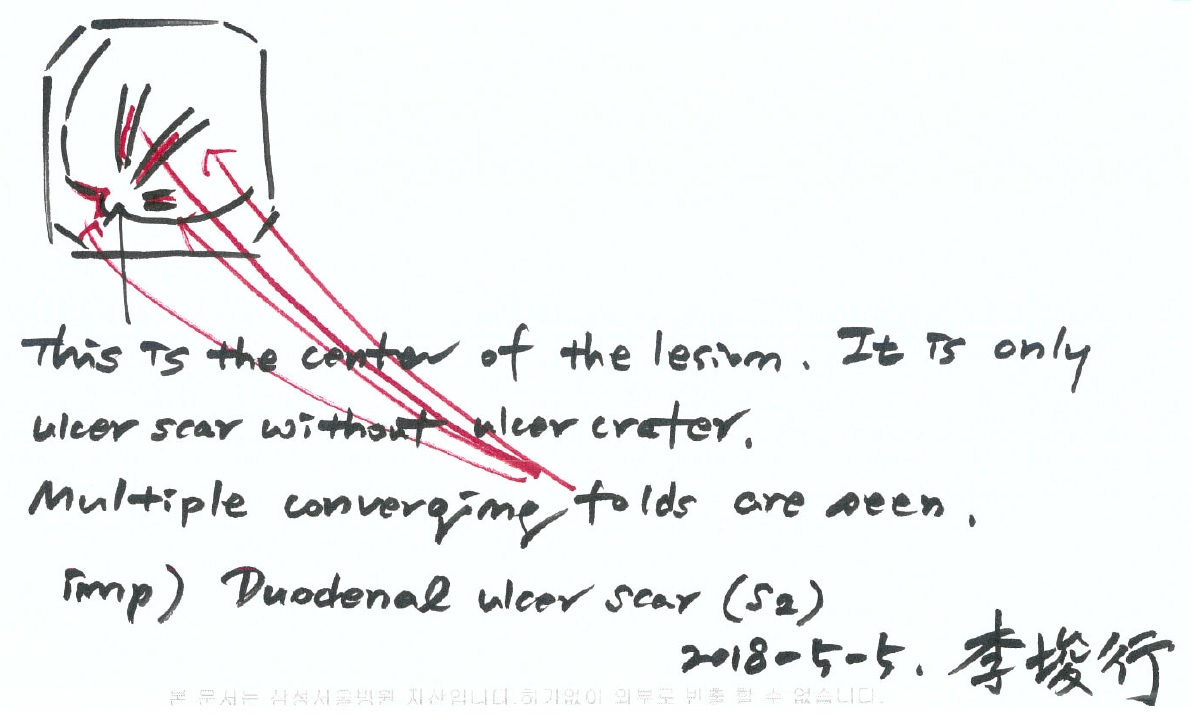 This is the center of the lesion. It is only
ulcer scar without ulcer crater.
Multiple converging folds are seen.
imp) Duodenal ulcer scar (S2)
2018-5-5. 李埈行
본 문서는 삼성서울병원 자산입니다. 허가없이 외부로 반출 할 수 없습니다.